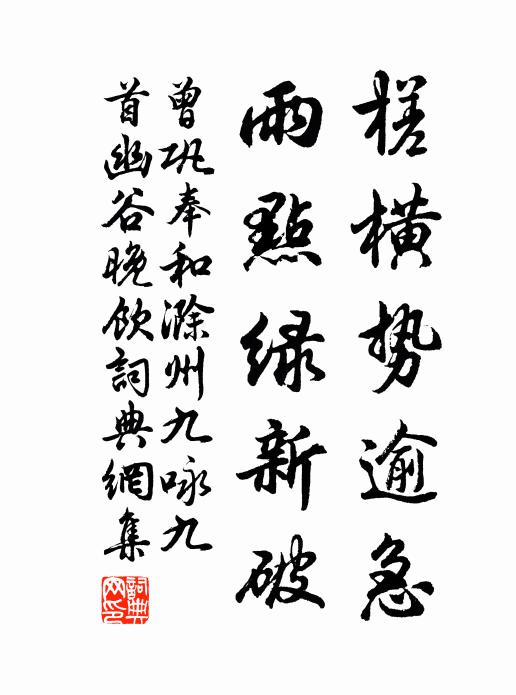 槎橫势逾急
雨點绿新破
曾巩奉和滁州九咏九
首幽谷晚飲詞典網集
詞典网印